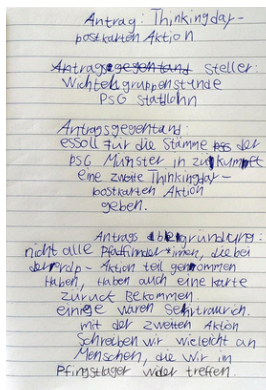 Antrag: Thinkingday-
postkarten Aktion
Antragsgegehtand steller:
Wichtelgruppenstunde
PSG Stattlohn
Antragsgegenstand:
essoll für die Stämme der
PSG Münster in zukumpft
eine zweite Thinkingday-
postkarten Aktion
geben.
Antrags begründung:
nicht alle Pfadfinder*innen, die bei
der - Aktion teil genommen
haben, haben auch eine karte
zurück bekommen.
einige waren sehr traurich.
mit der zweiten Aktion
Schreiben wir vieleicht an
Menschen, die wir im
Pfingstlager wider treffen.